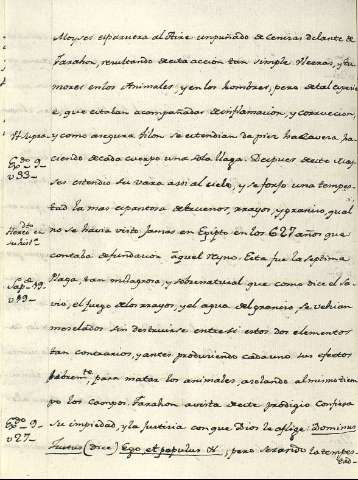 Moyses esparciera al Aire un puñado de Cenizas delante de
Farahon, resultando de esta acción tan simple Ulceras, y tu-
mores en los Animales, y en los hombres, pero de tal especie
e, que estaban acompañadas de inflamacion, y corrupcion,
H supra
y como asegura Filon se estendian de pies à cabeza ha-
Exdo 9-
ciendo de cada cuerpo una sola llaga. Despues de este Moy-
v33-
ses estendio su vara assi al cielo, y se forjó una tempes-
tad la mas espantosa de truenos, rrayos, y granizo, qual
no se havia visto Jamas en Egipto en los 627 años que
contaba de fundacion aquel Reyno. Esta fue la septima
Sapa 19-
Plaga, tan milagrosa, y sobrenatural, que como dice el Sa-
v19-
vio, el fuego de los rrayos, y el agua del granizo, se vehian
mesclados sin destruirse entre si estos dos elementos
tan contrarios, y antes produciendo cada uno sus efectos
para matar los animales, asolando al mismo tiem-
po los campos. Farahon a vista de este prodigio confiesa
Exdo 9-
su impiedad, y la Justicia con que Dios le aflige: Dominus
v27-
Justus (dice) Ego, et populus &; pero cesando la tempes-
tad-